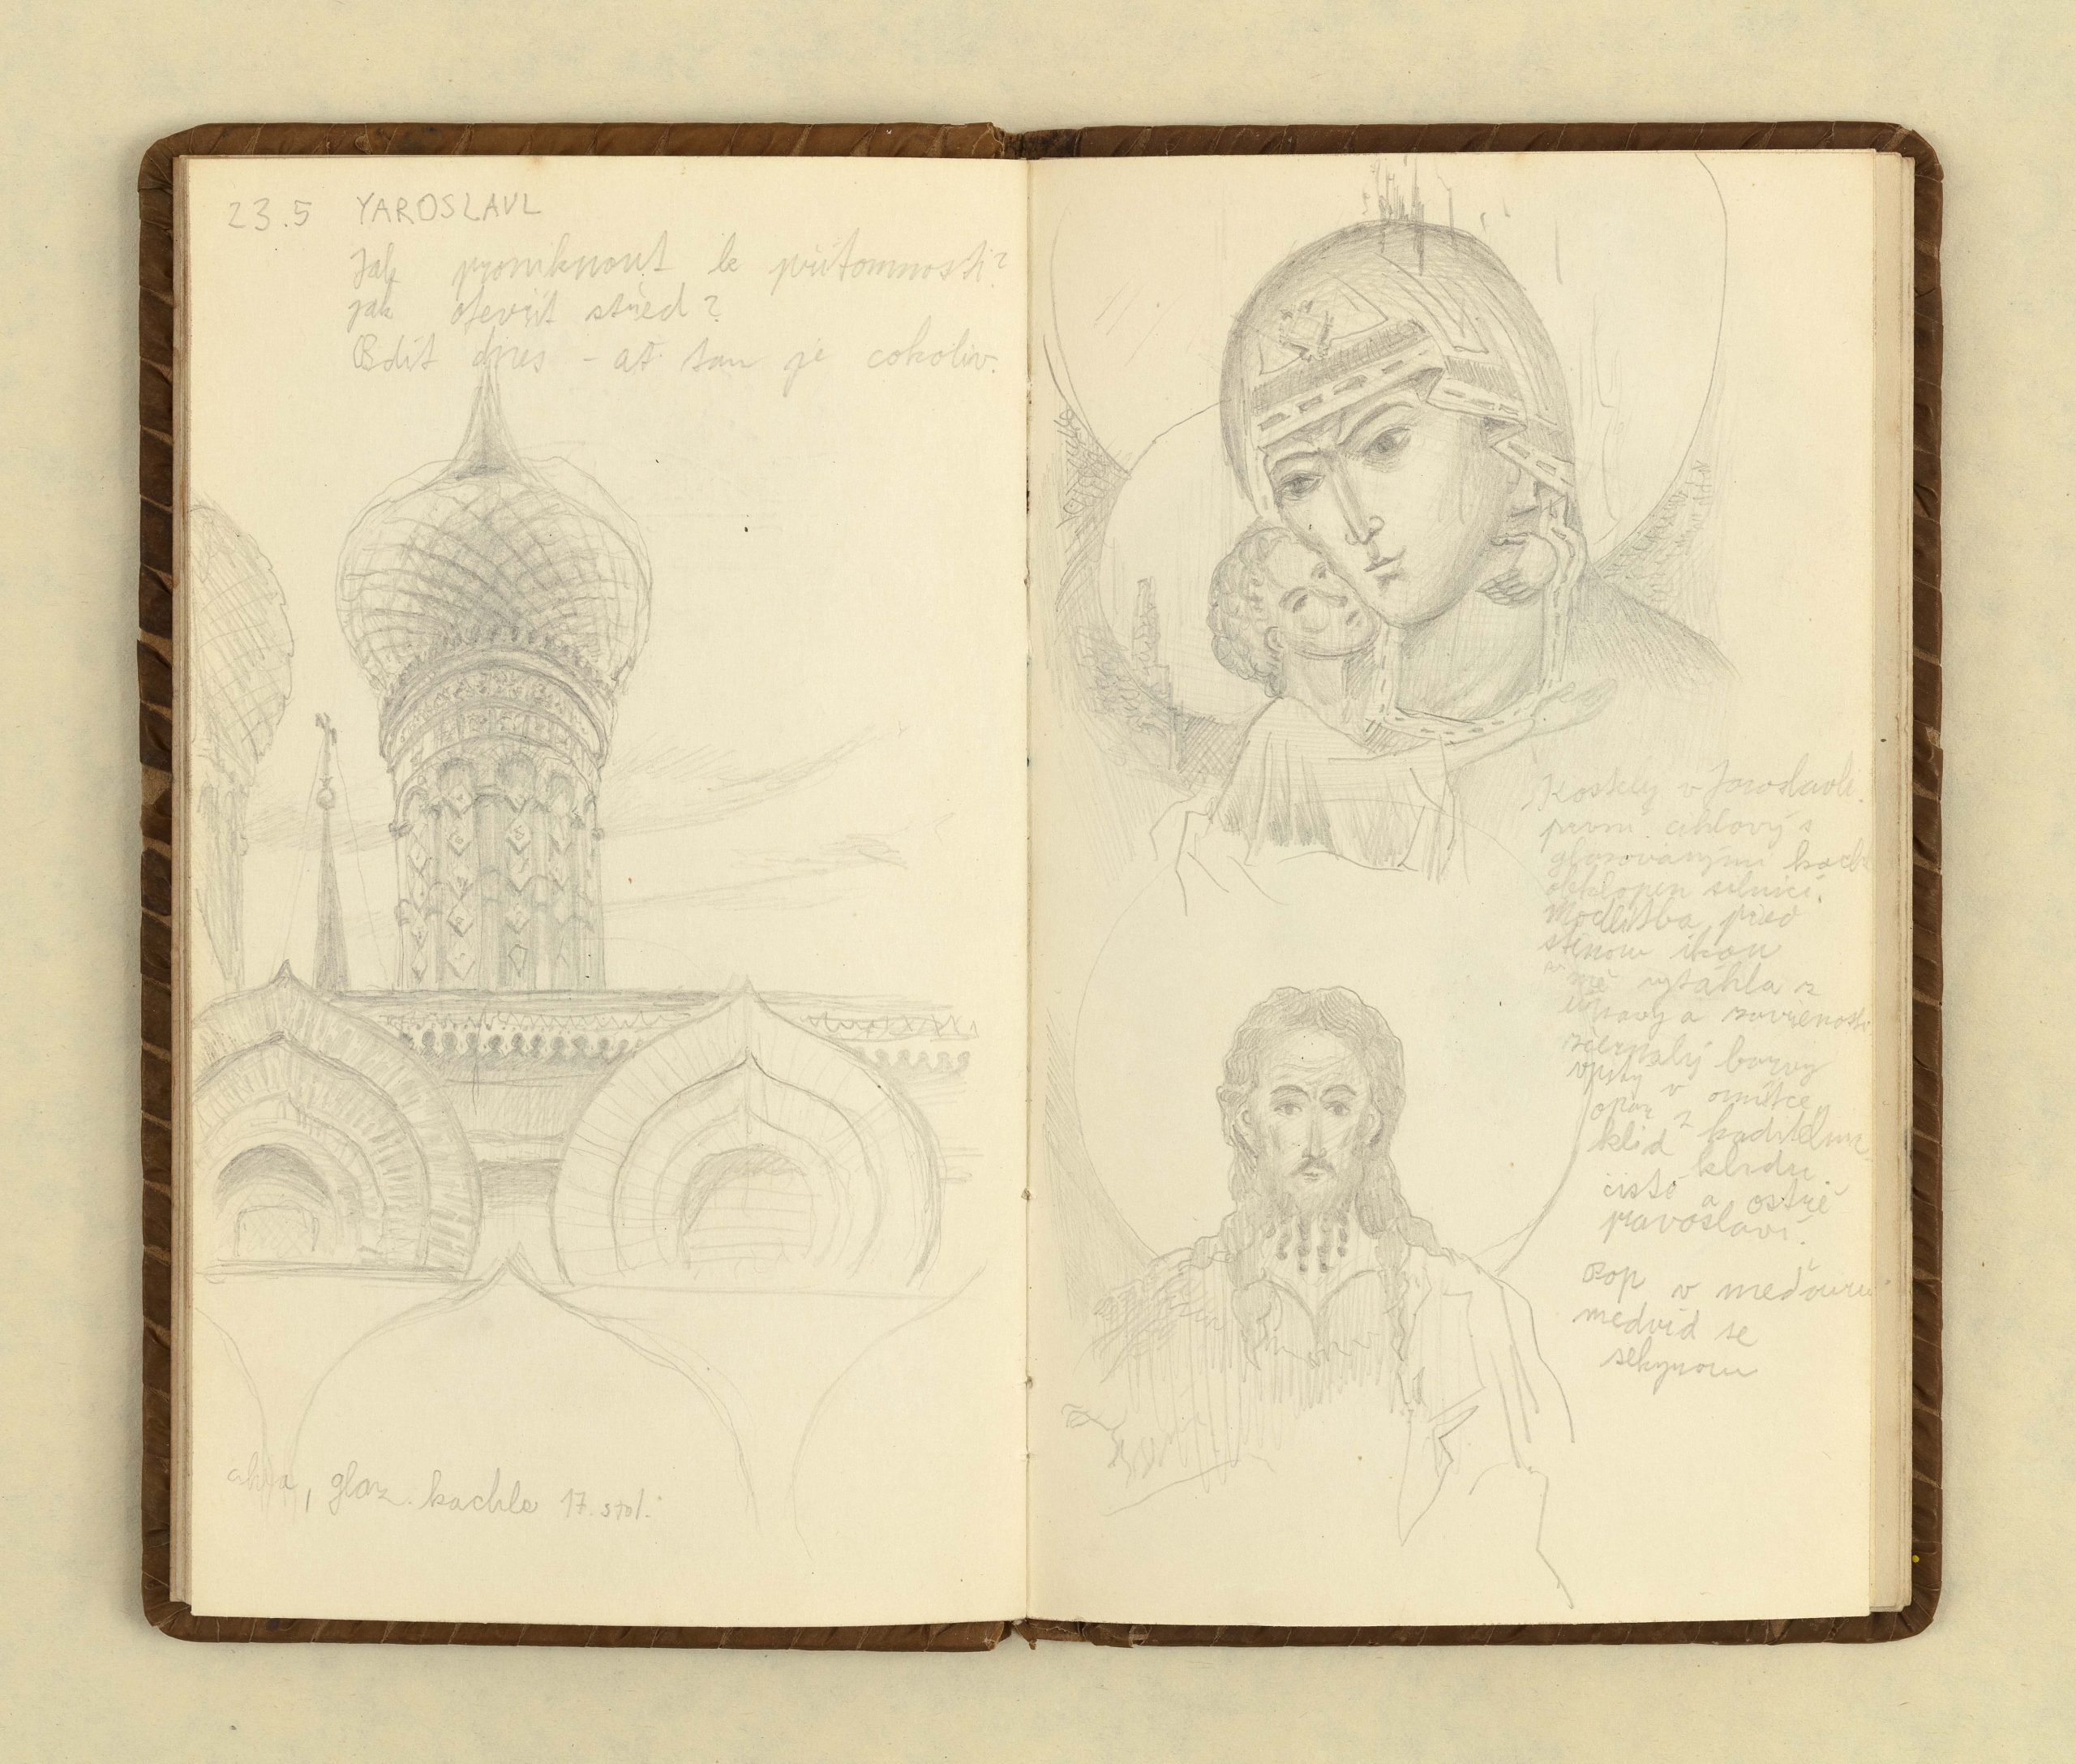 23.5 YAROSLAVL
Jak proniknout k přítomnosti?
jak otevřít střed?
Bdít dnes - ať tam je cokoliv.
cihla, glaz. kachle 17. stol.
Kostely v Jaroslavli.
první cihlový s
glazovanými kachl
obklopen silnicí.
Modlitba před
stěnou ikon
mě vytáhla z
únavy a zavřenosti
zčernalý barvy
v omítce
opar z kadidelnic
klid klidu
čistě a ostře
pravoslaví.
Pop v meďouru
medvíd se
sekyrou